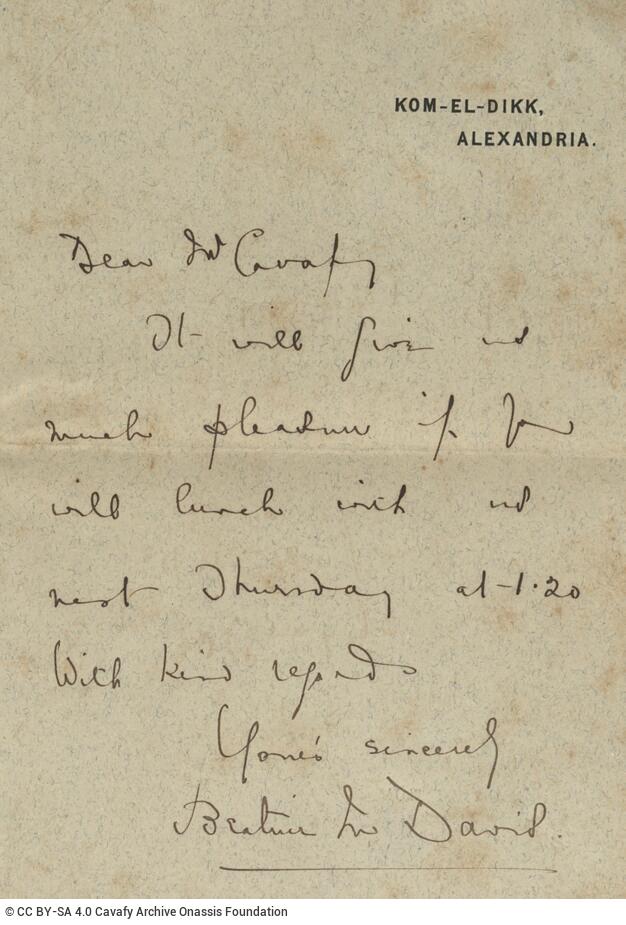 KOM-EL-DIKK,
ALEXANDRIA.
Dear Mr Cavafy
It will give us
much pleasure if you
will lunch with us
next Thursday at 1.20
With kind regards
Yours sincerely
Beatrice M David.
© CC BY-SA 4.0 Cavafy Archive Onassis Foundation